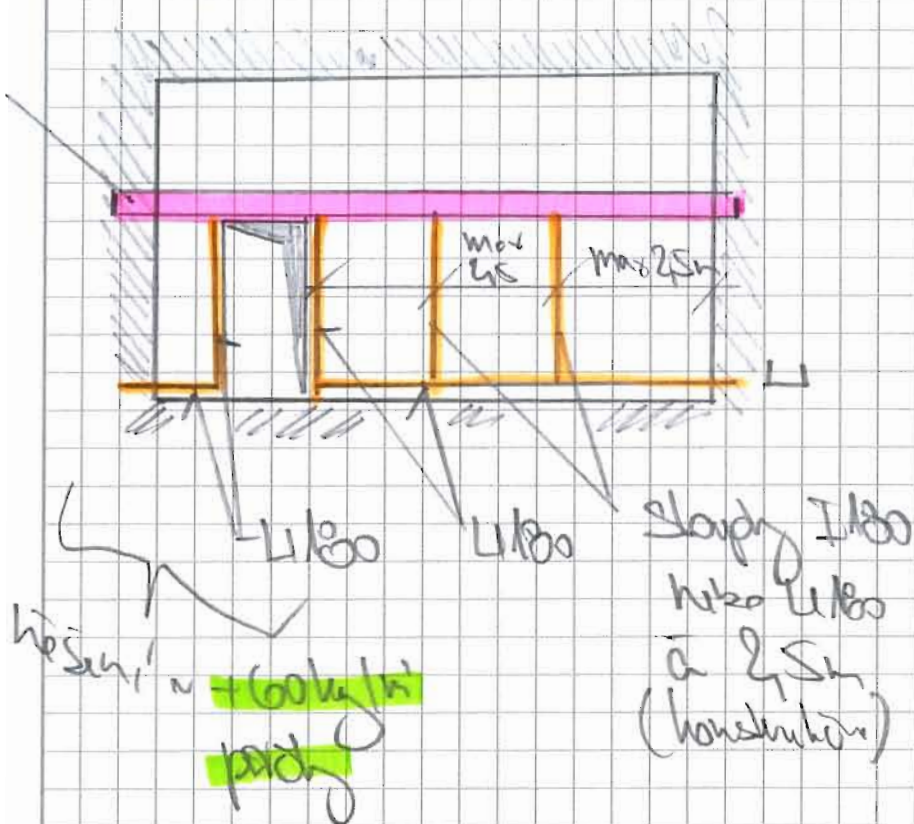 max
2,5
max 2,5m
U180
U180
Sloupky I180
nebo U180
á 2,5m
(konstrukční)
řešení ~ +60kg/m